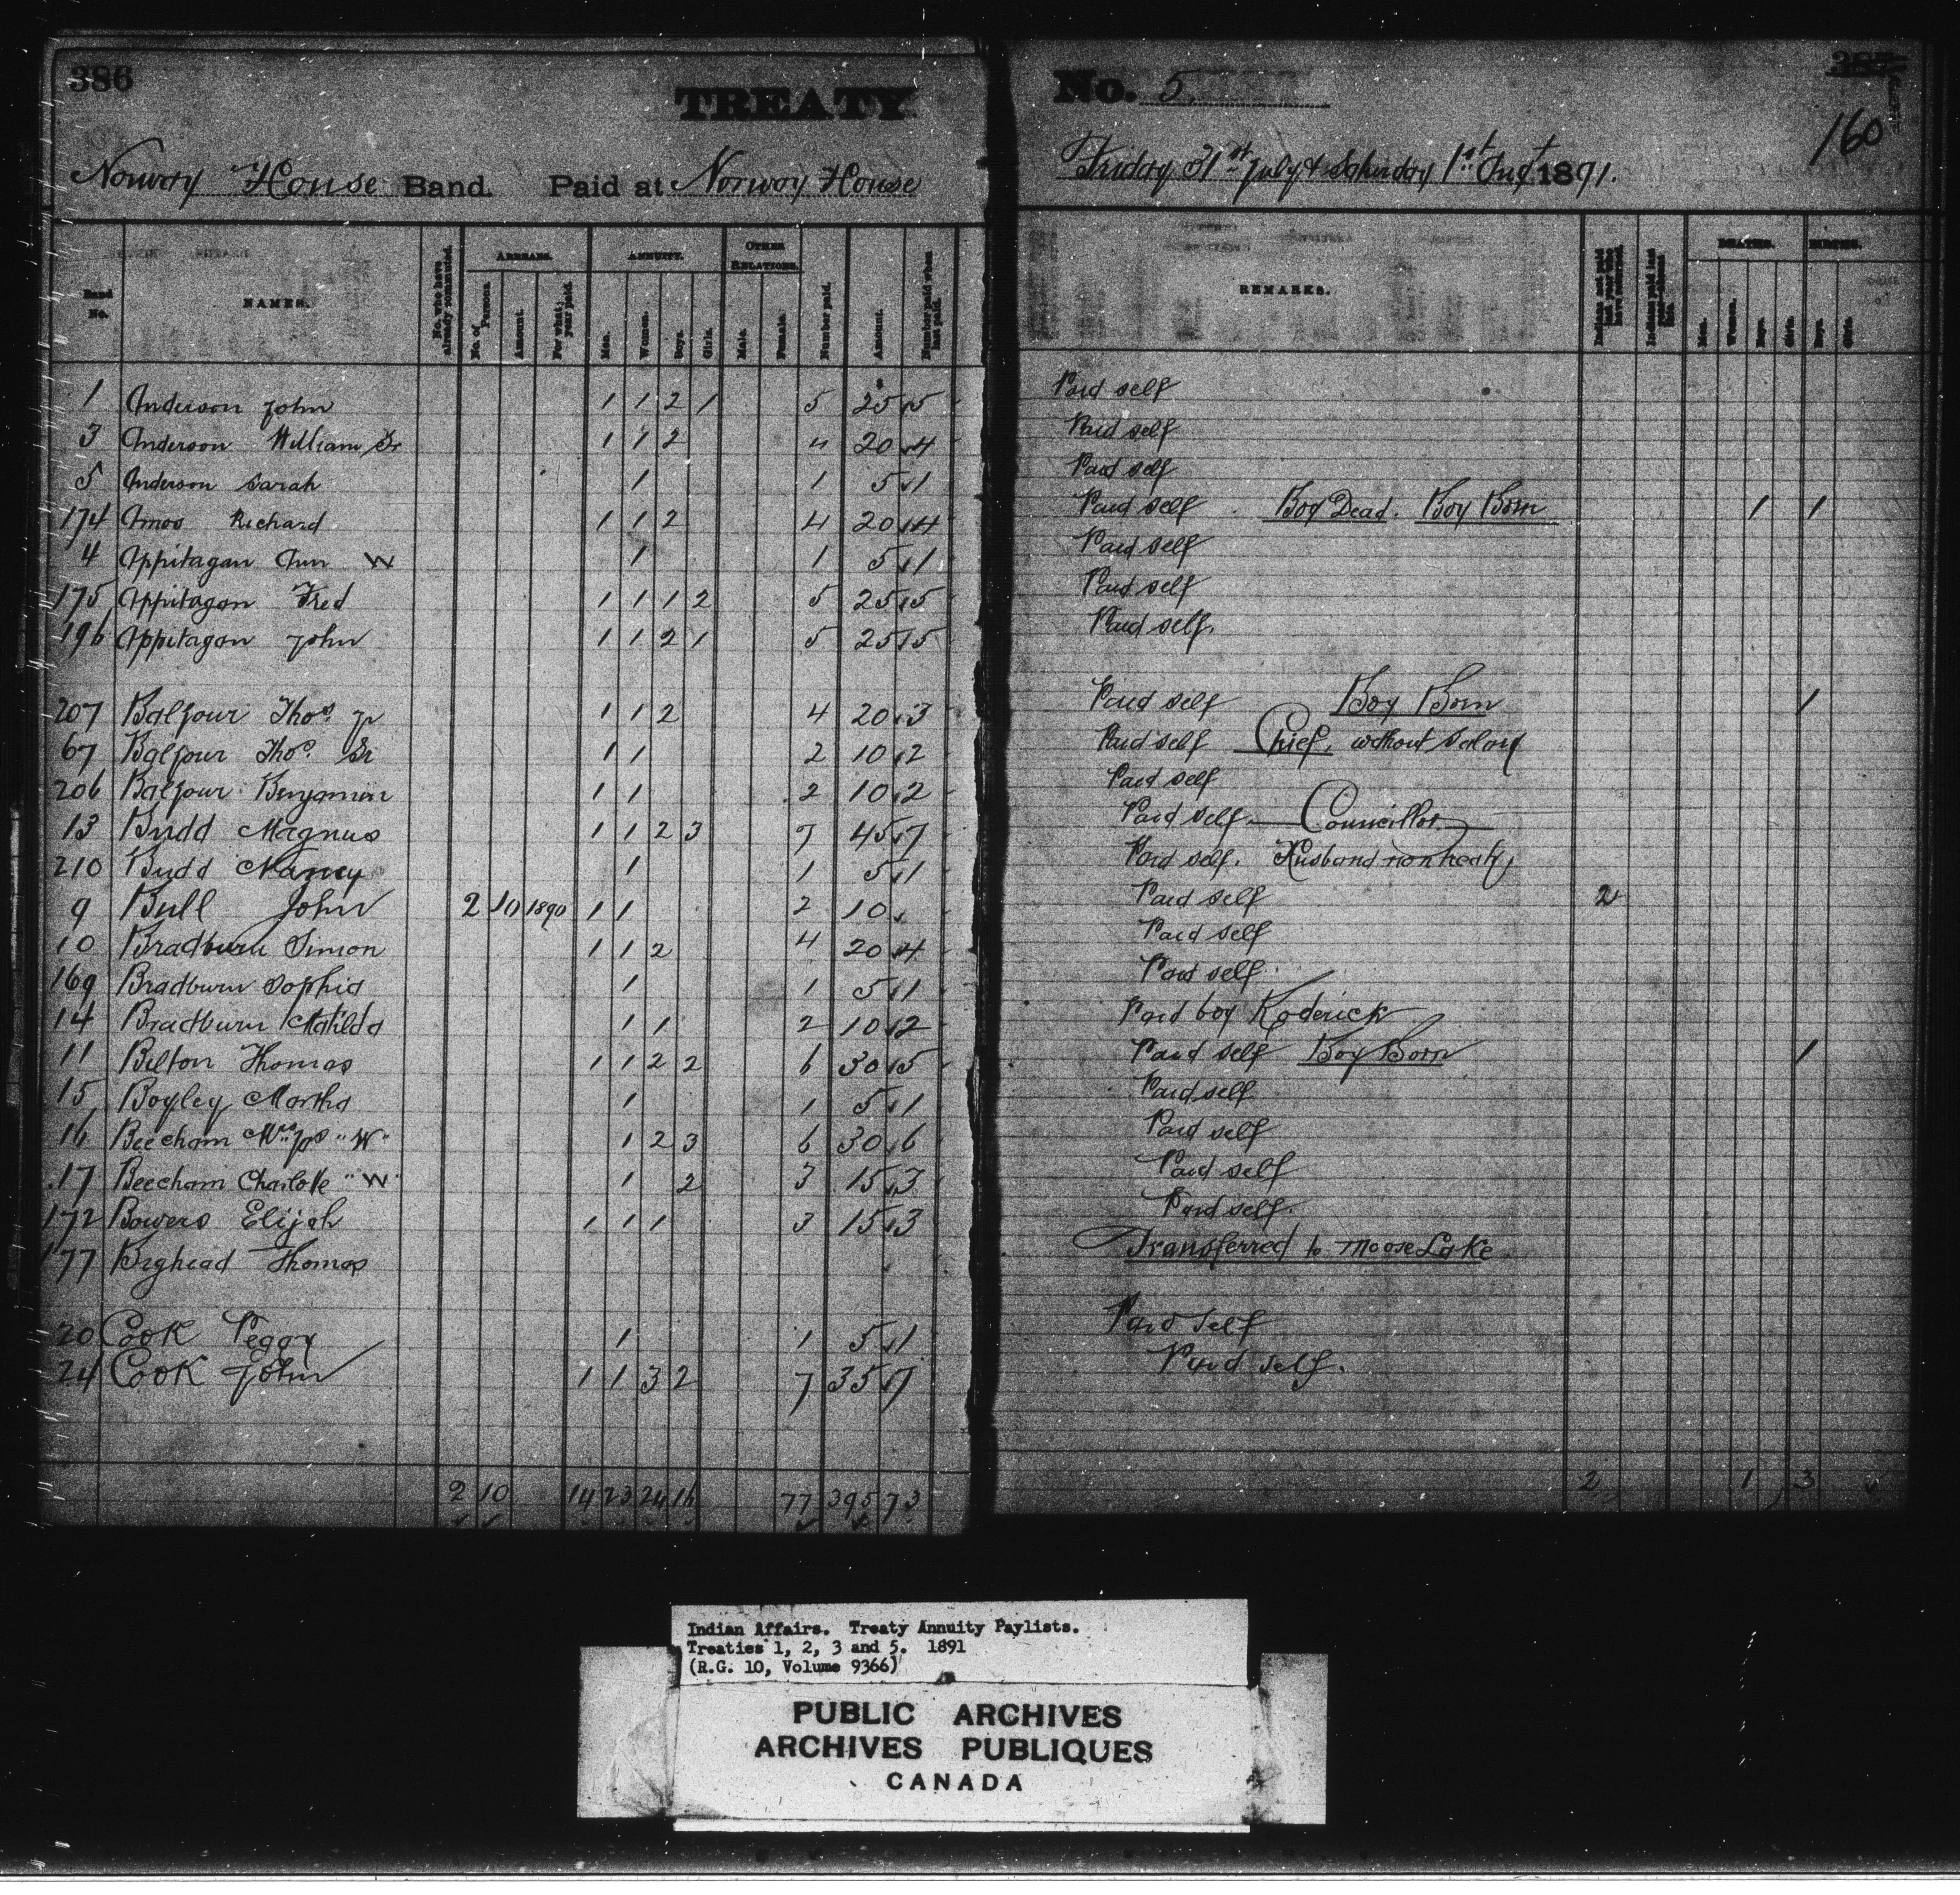 386
TREATY
Norway House Band. Paid at Norway House
No. 5.
387
160
Friday 31st July & Saturday 1st Augt 1891.
Band No. NAMES. No. who have already commuted. ARREARS. No. of Persons. Amount. For what year paid. ANNUITY. Men. Women. Boys. Girls. OTHER RELATIONS. Male. Female. Number paid. Amount. Number paid when last paid.
REMARKS. Indians not paid last year who have returned. DEATHS. Men. Women. Boys. Girls. BIRTHS. Boys. Girls.
1 Anderson John 1 1 2 1 5 25 5 Paid self
3 Anderson William Sr 1 1 2 4 20 4 Paid self
5 Anderson Sarah 1 1 5 1 Paid self
174 Amos Richard 1 1 2 4 20 4 Paid self Boy Dead. Boy Born 1 1
4 Appitagan Ann W 1 1 5 1 Paid self
175 Appitagan Fred 1 1 1 2 5 25 5 Paid self
196 Appitagan John 1 1 2 1 5 25 5 Paid self.
207 Balfour Thos. Jr 1 1 2 4 20 3 Paid self Boy Born 1
67 Balfour Thos. Sr 1 1 2 10 2 Paid self Chief, without Salary
206 Balfour Benjamin 1 1 2 10 2 Paid self
13 Budd Magnus 1 1 2 3 7 45 7 Paid self. Councillor
210 Budd Nancy 1 1 5 1 Paid self. Husband non treaty
9 Bull John 2 10 1890 1 1 2 10 Paid self 2
10 Bradburn Simon 1 1 2 4 20 4 Paid self
169 Bradburn Sophia 1 1 5 1 Paid self
14 Bradburn Matilda 1 1 2 10 2 Paid boy Roderick
11 Belton Thomas 1 1 2 2 6 30 5 Paid self Boy Born 1
15 Boyley Martha 1 1 5 1 Paid self
16 Beecham Mrs Jas "W" 1 2 3 6 30 6 Paid self
17 Beecham Charlotte "W" 1 2 3 15 3 Paid self
172 Bowers Elijah 1 1 1 3 15 3 Paid self.
177 Bighead Thomas Transferred to Moose Lake
20 Cook Peggy 1 1 5 1 Paid self
24 Cook John 1 1 3 2 7 35 7 Paid self.
2 10 14 23 24 16 77 395 73 2 1 3
Indian Affairs. Treaty Annuity Paylists.
Treaties 1, 2, 3 and 5. 1891
(R.G. 10, Volume 9366)
PUBLIC ARCHIVES
ARCHIVES PUBLIQUES
CANADA